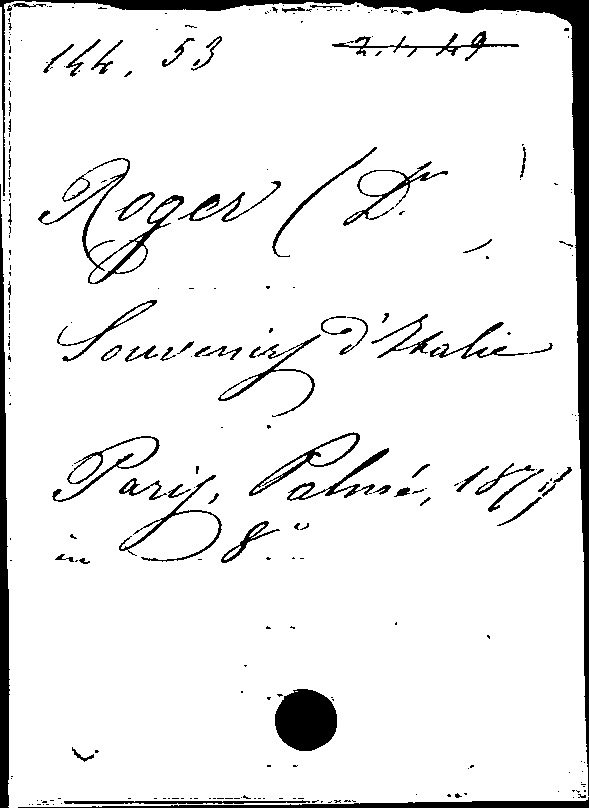 144. 53 2.4.49
Roger (Dr )
Souvenirs d'Italie
Paris, Palmé, 1873
in 8°